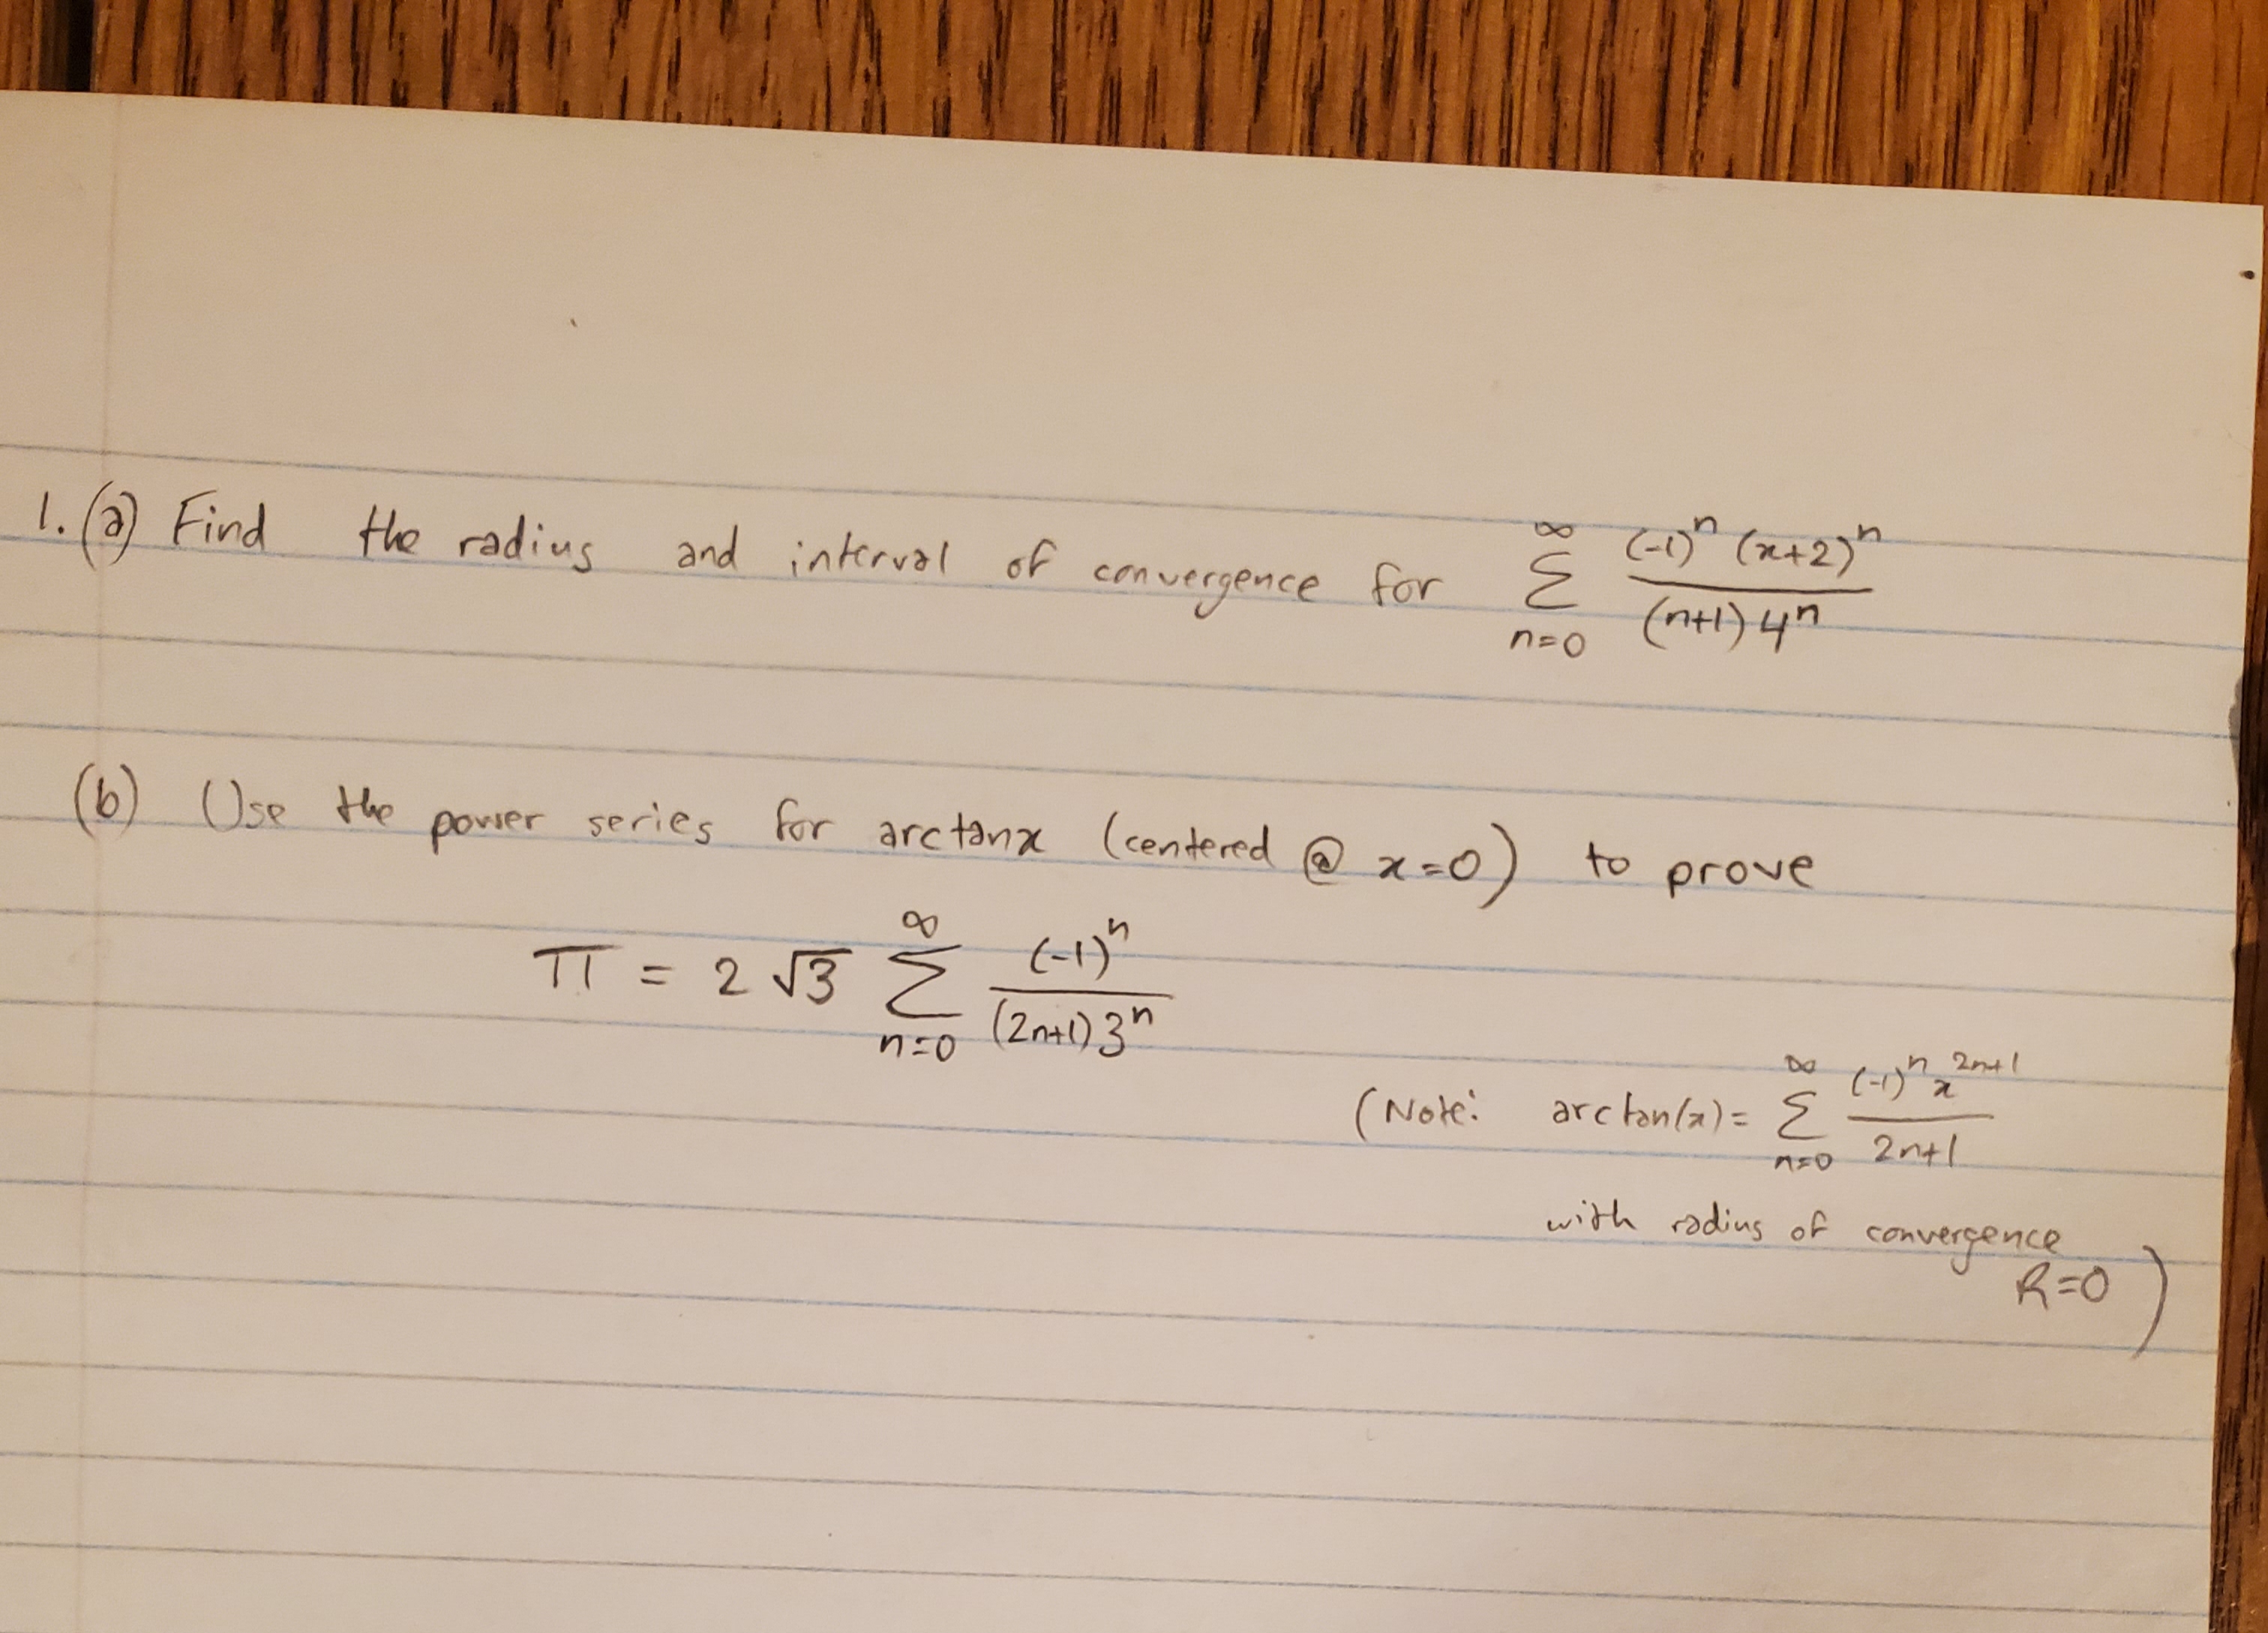 1. (a) Find the radius and interval of convergence for ∞∑n=0 (-1)^n (x+2)^n / (n+1) 4^n
(b) Use the power series for arctanx (centered @ x=0) to prove
π = 2 √3 ∞∑n=0 (-1)^n / (2n+1) 3^n
(Note: arctan(x) = ∞∑n=0 (-1)^n x^2n+1 / 2n+1
with radius of convergence
R=0)